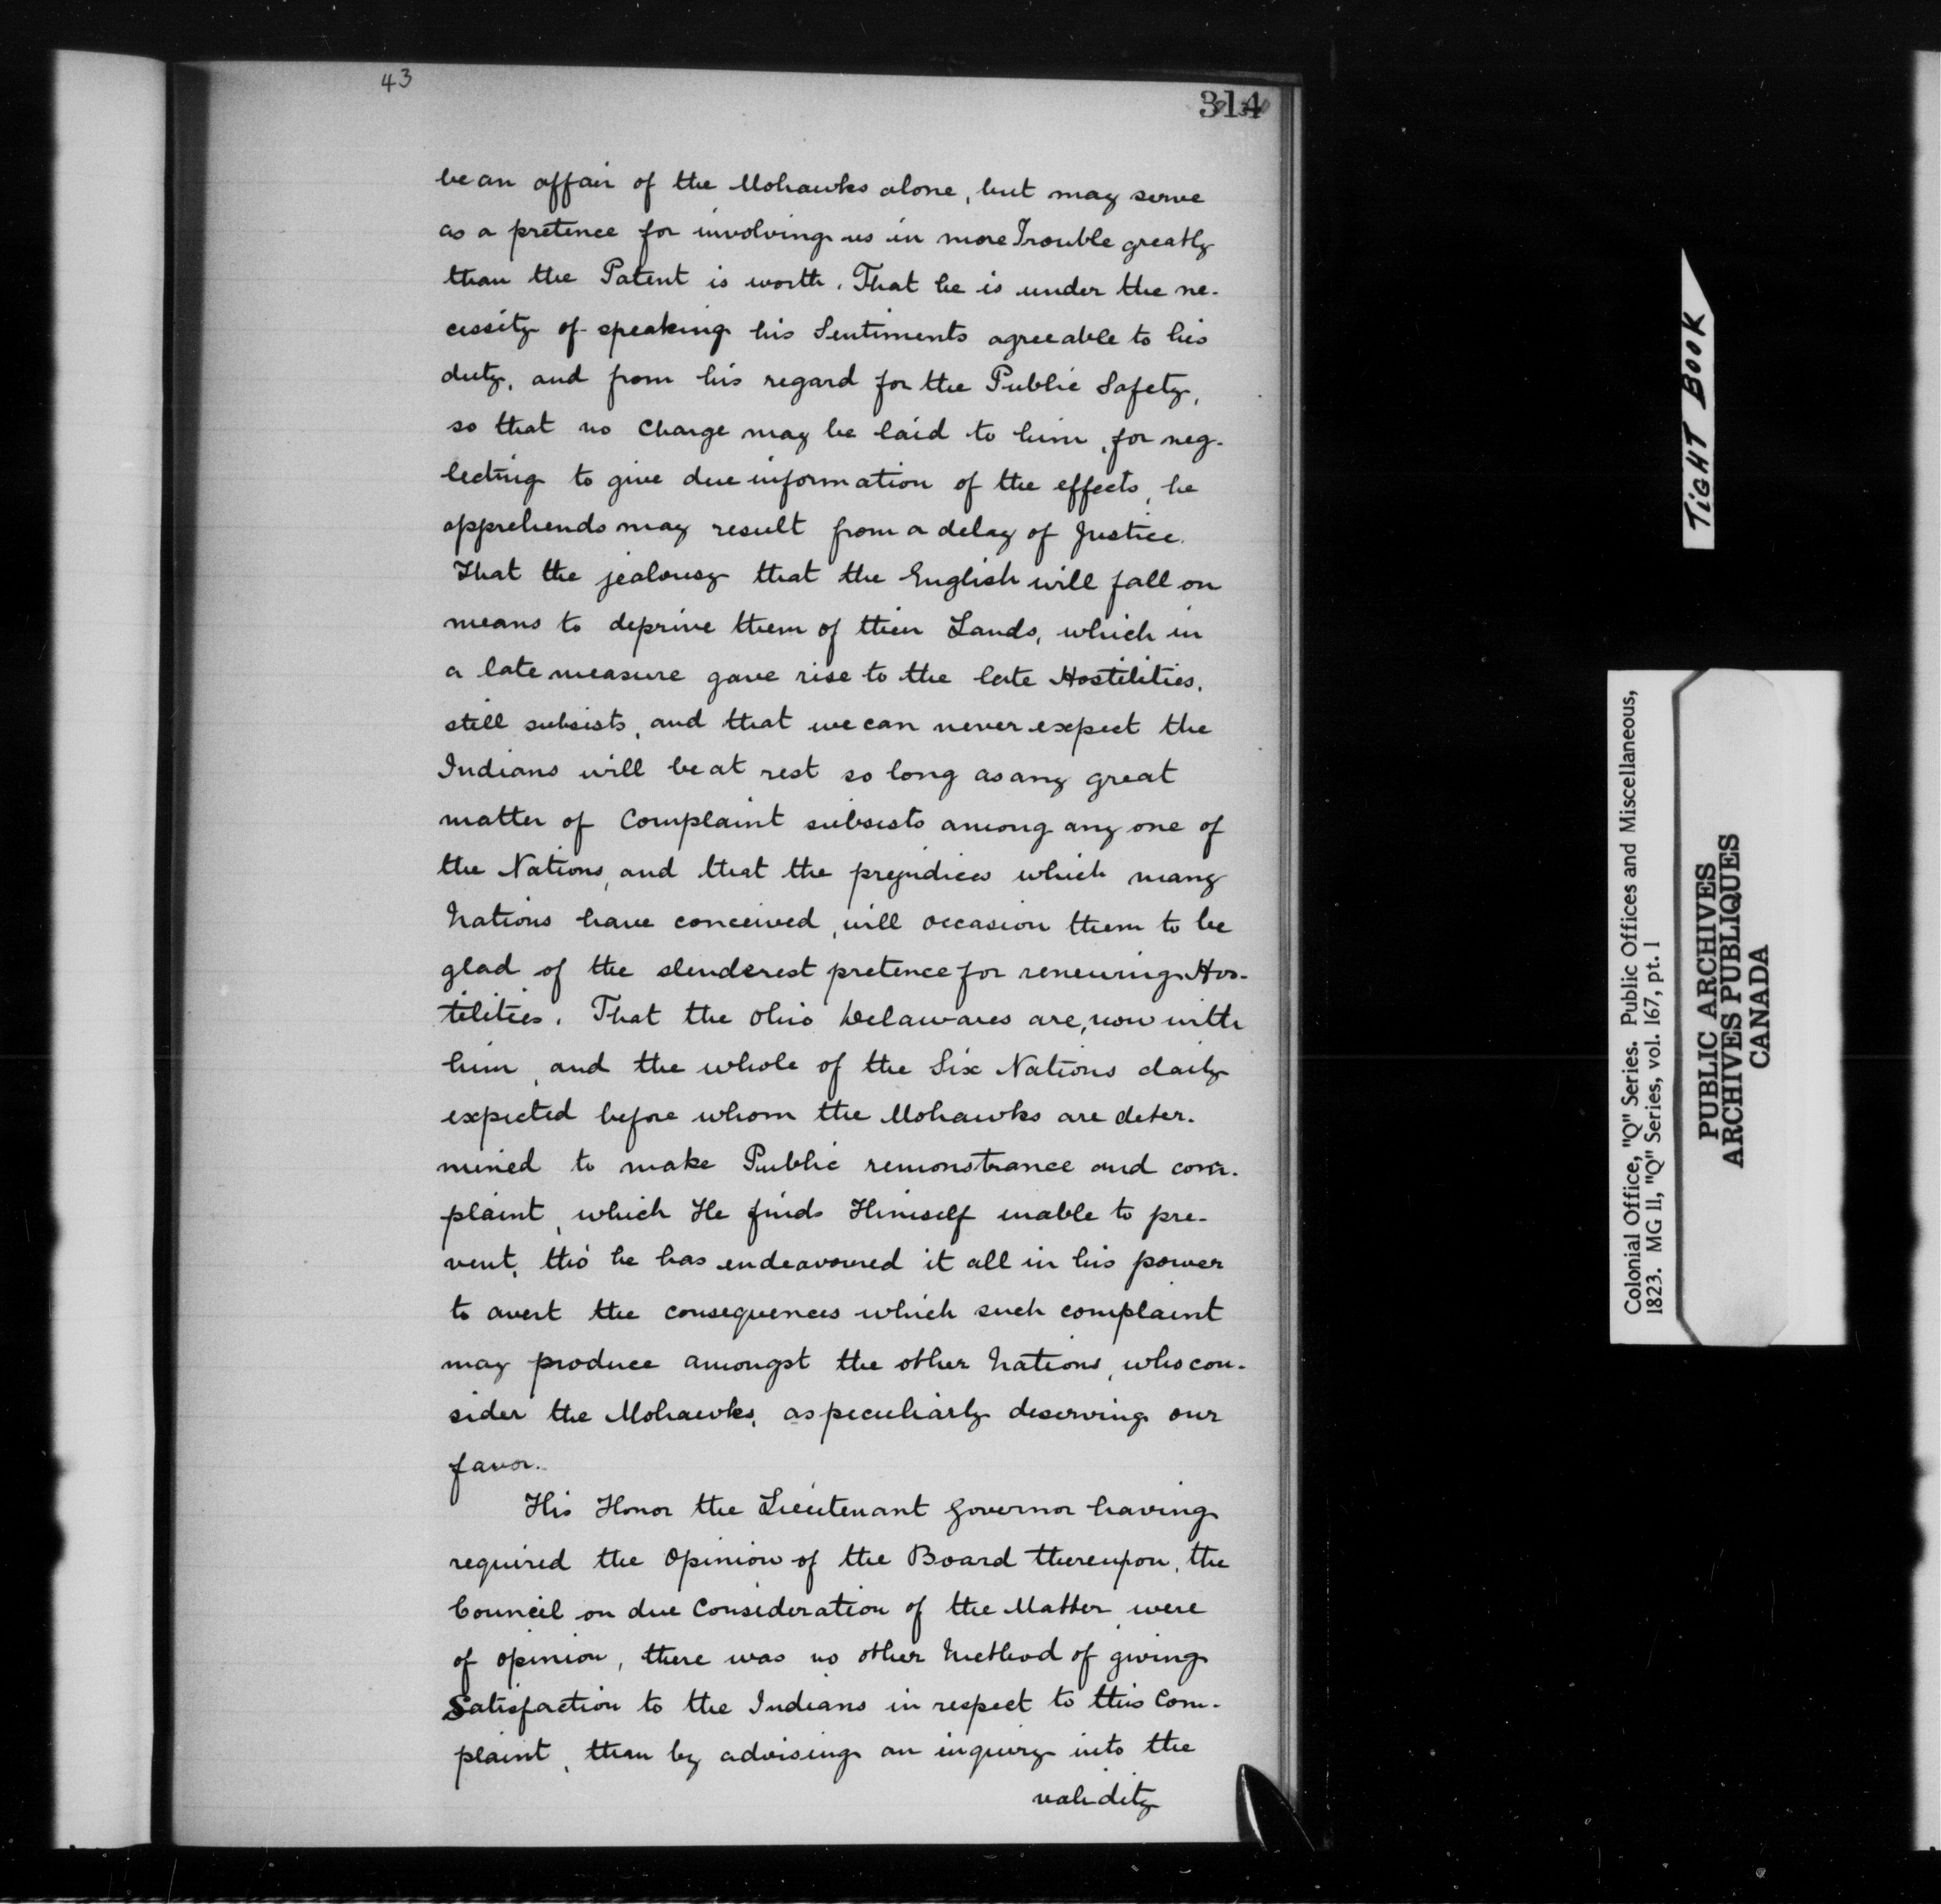 43
314
be an affair of the Mohawks alone, but may serve
as a pretence for involving us in more Trouble greatly
than the Patent is worth. That he is under the ne-
cessity of speaking his Sentiments agreeable to his
duty, and from his regard for the Public Safety,
so that no Charge may be laid to him, for neg-
lecting to give due information of the effects, he
apprehends may result from a delay of Justice.
That the jealousy that the English will fall on
means to deprive them of their Lands, which in
a late measure gave rise to the late Hostilities,
still subsists, and that we can never expect the
Indians will be at rest so long as any great
matter of Complaint subsists among any one of
the Nations, and that the prejudices which many
Nations have conceived, will occasion them to be
glad of the slenderest pretence for renewing Hos-
tilities. That the Ohio Delawares are, now with
him, and the whole of the Six Nations daily
expected before whom the Mohawks are deter-
mined to make Public remonstrance and com-
plaint, which He finds Himself unable to pre-
vent, tho' he has endeavoured it all in his power
to avert the consequences which such complaint
may produce amongst the other Nations, who con-
sider the Mohawks, as peculiarly deserving our
favor.
His Honor the Lieutenant Governor having
required the Opinion of the Board thereupon, the
Council on due Consideration of the Matter were
of opinion, there was no other Method of giving
Satisfaction to the Indians in respect to this Com-
plaint, than by advising an inquiry into the
validity
TIGHT BOOK
Colonial Office, "Q" Series. Public Offices and Miscellaneous,
1823. MG 11, "Q" Series, vol. 167, pt. 1
PUBLIC ARCHIVES
ARCHIVES PUBLIQUES
CANADA